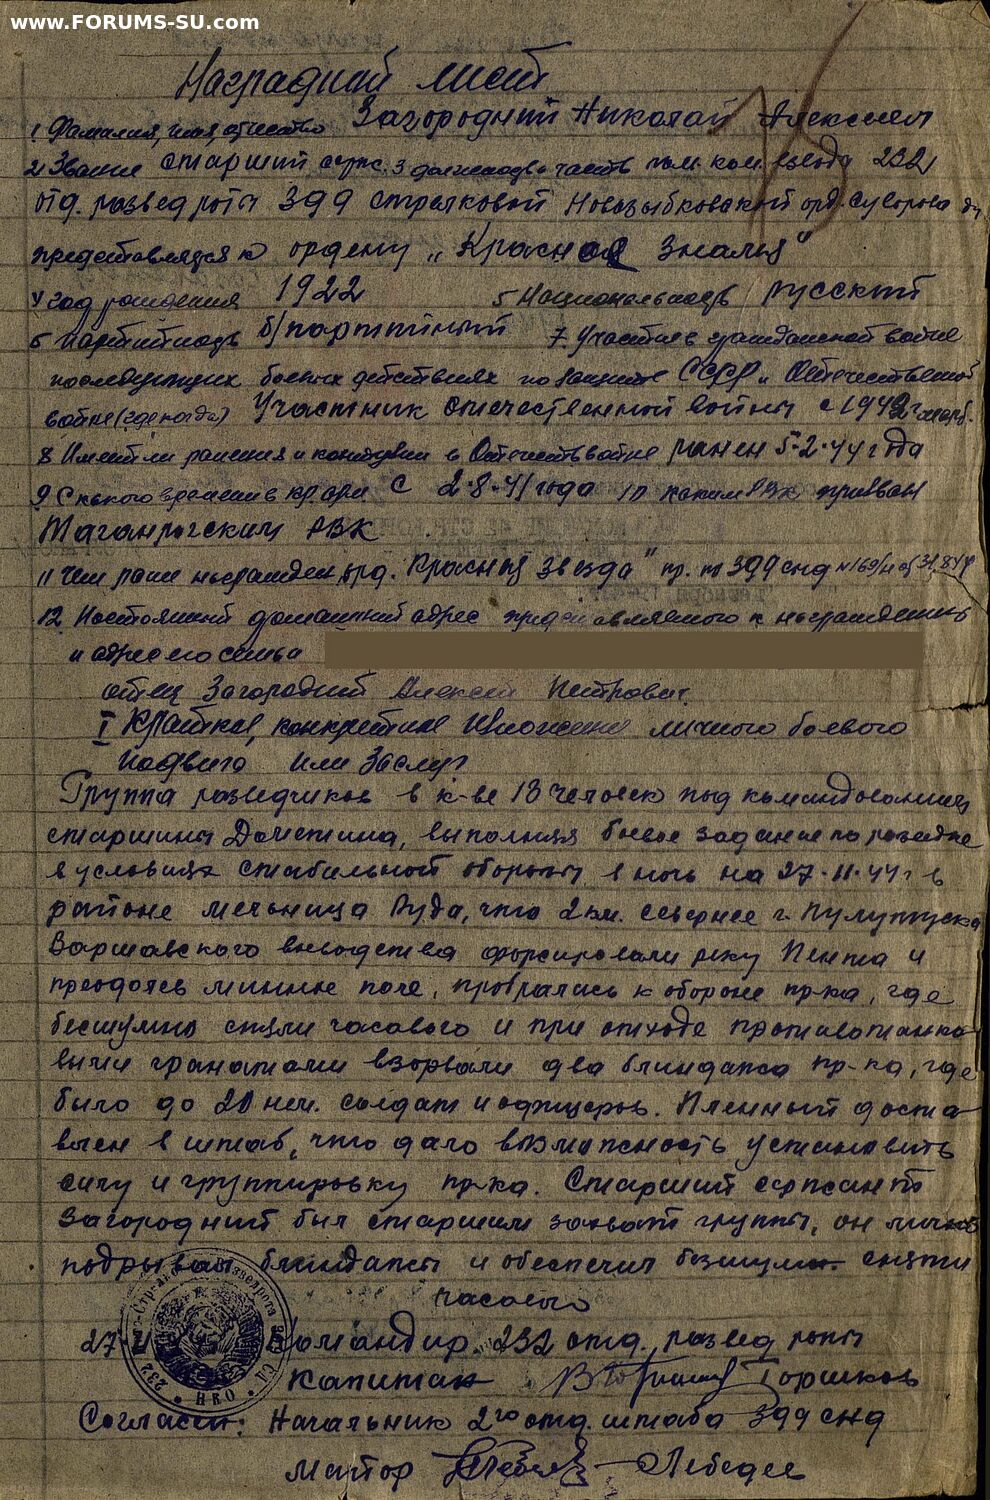 www.FORUMS-SU.com
Наградной лист
1 Фамилия, имя, отчество Загородний Николай Алексеев
2 Звание старший серж. 3 должность часть пом. ком. взвода 232
отд. разведроты 399 стрелковой Новозыбковской орд. Суворова ди
представляется к ордену „Красное знамя"
4 год рождения 1922 5 Национальность русский
6 партийность б/партийный 7 Участие в гражданской войне
последующих боевых действиях по защите СССР и Отечественной
войне (где когда) Участник отечественной войны с 1942г
8 Имеет ли ранения и контузии в Отечеств войне ранен 5.2.44 года
9 С какого времени в кр. арм с 2.8.41 года 10 каким РВК призван
Таганрогским РВК
11 Чем ранее награжден орд. „Красная звезда" пр. по 399 снд №169/н от 31.8.44
12 Постоянный домашний адрес представляемого к награждению
и адрес его семьи
отец Загородний Алексей Петрович
I Краткое, конкретное изложение личного боевого
подвига или заслуг
Группа разведчиков в к-ве 13 человек под командованием
старшины выполняя боевое задание по разведке
в условиях стабильной обороны в ночь на 27.11.44 г в
районе мельница Руда, что 2 км. севернее г. Пулутуска
Варшавского воеводства форсировали реку и
преодолев минное поле, пробрались к обороне пр-ка, где
бесшумно сняли часового и при отходе противотанко-
выми гранатами взорвали два блиндажа пр-ка, где
было до 20 нем. солдат и офицеров. Пленный доста-
влен в штаб, что дало возможность установить
силу и группировку пр-ка. Старший сержант
Загородний был старшим захват группы, он лично
подрывал блиндажи и обеспечил безшумн. снятие
часового
27 Командир 232 отд. развед роты
капитан Горшков
Согласен: Начальник 2го отд. штаба 399 снд
майор Лебедев
232 НКО